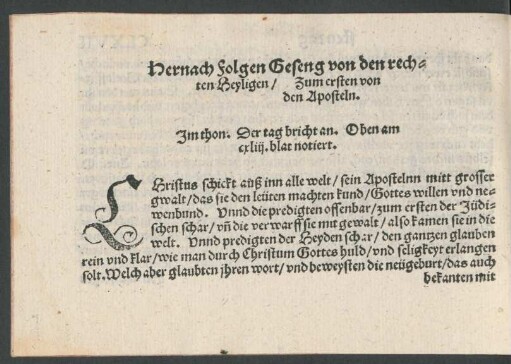 Hernach folgen Geseng von den rech-
ten Heyligen / Zum ersten von
den Aposteln.
Im thon. Der tag bricht an. Oben am
cxliij. blat notiert.
CHristus schickt auß inn alle welt / sein Apostelnn mitt grosser
gwalt / das sie den leüten machten kund / Gottes willen vnd ne-
wenbund. Vnnd die predigten offenbar / zum ersten der Jüdi-
schen schar / vñ die verwarff sie mit gewalt / also kamen sie in die
welt. Vnnd predigten der Heyden schar / den gantzen glauben
rein vnd klar / wie man durch Christum Gottes huld / vnd seligkeyt erlangen
solt. Welch aber glaubten jhren wort / vnd beweysten die neügeburt / das auch
bekanten mit